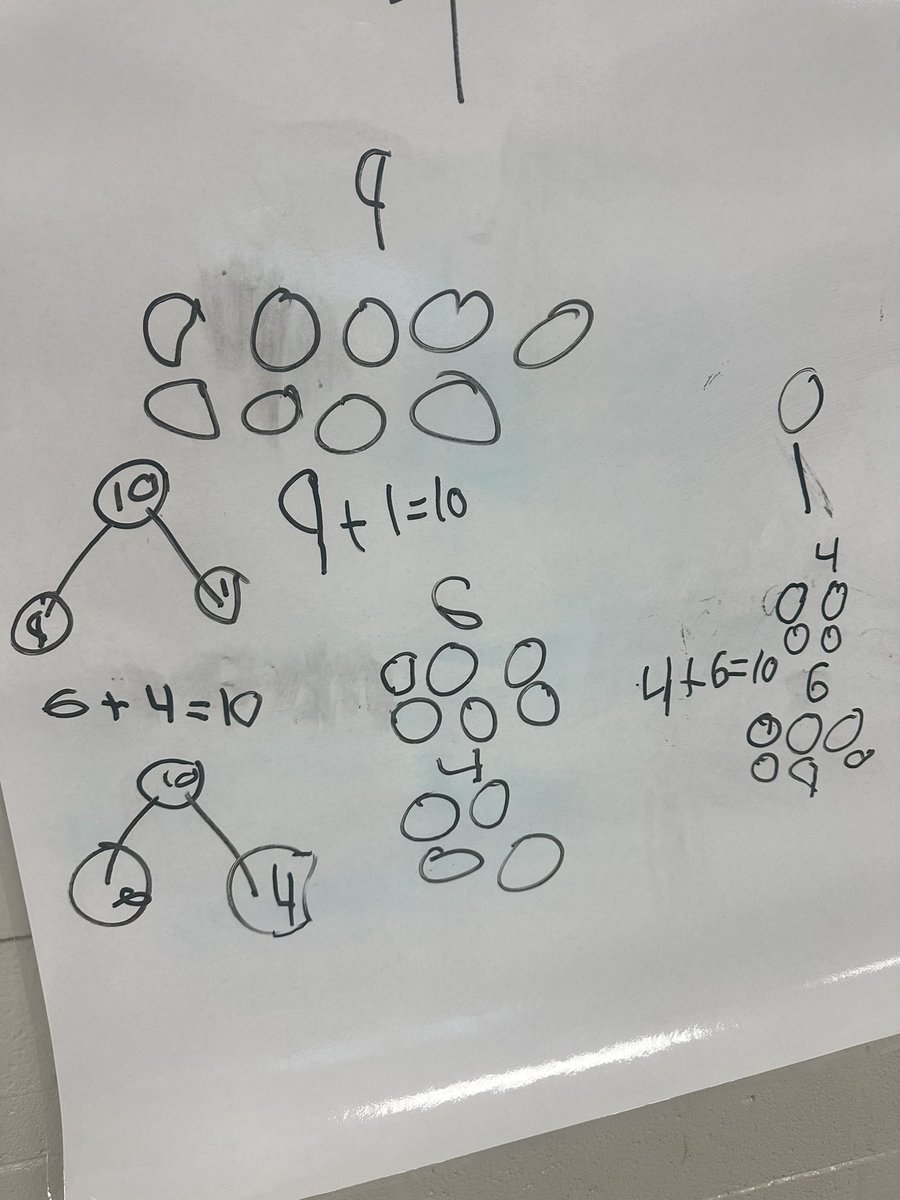 9
10
9+1=10
9
1
6
6+4=10
10
6
4
4
1
4
4+6=10
6